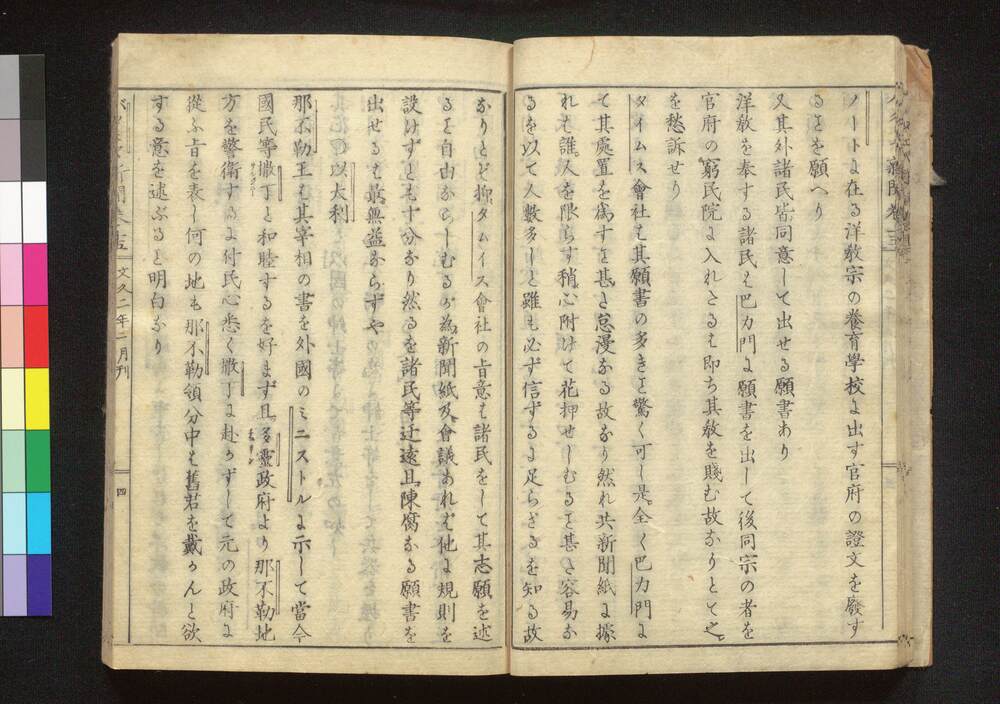 ノートに在る洋教宗の養育學校に出す官府の證文を廢す
るヿを願へり
又其外諸民皆同意して出せる願書あり
洋教を奉する諸民は巴力門に願書を出して後同宗の者を
官府の窮民院に入れさるは即ち其教を賤む故なりとて之
を愁訴せり
タイムス會社は其願書の多きヿ驚く可し是全く巴力門に
て其處置を爲すヿ甚さ怠漫なる故なり然れ共新聞紙に據
れは誰人を限らす稍心附けて花押せしむるヿ甚さ容易な
るを以て人數多しと雖も必ず信ずるに足らざるを知る故
なりとぞ抑タムイス會社の旨意は諸民をして其志願を述
るヿ自由ならしむるが爲新聞紙及會議あれば他に規則を
設けずとも十分なり然るを諸民等迂遠且陳腐なる願書を
出せるは最無益ならずや
以太利
那不勒王は其宰相の書を外國のミニストルに示して當今
國民等撒丁と和睦するを好まず且多靈政府より那不勒地
方を警衛するに付民心悉く撒丁に赴かずして元の政府に
從ふ旨を表し何の地も那不勒領分中は舊君を戴かんと欲
する意を述ぶると明白なり
新聞卷
文久二年二月刊
四